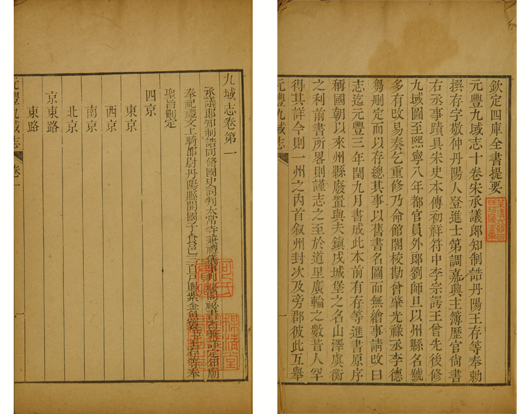 欽定四庫全書提要
元豐九域志十卷宋承議郎知制誥丹陽王存等奉敕
撰存字敬仲丹陽人登進士第調嘉興主簿歷官尚書
右丞事蹟具宋史本傳初祥符中李宗諤王曾先後修
九域圖至熙寧八年都官員外郎劉師旦以州縣名號
多有改易奏乞重修乃命館閣校勘曾肇光祿丞李德
芻刪定而以存總其事以舊書名圖而無繪事請改曰
志迄元豐三年閏九月書成此本前有存等進書原序
稱國朝以來州縣廢置與夫鎮戍城堡之名山澤虞衡
之利前書所略則謹志之至於道里廣輪之數昔人罕
得其詳今則一州之內首叙州封次及旁郡彼此互舉
元豐九域志
九域志卷第一
承議郎知制誥同修國史判太常寺兼禮儀事
騎都尉丹陽縣開國子食邑三百戶賜紫金魚袋臣王存等奉
聖旨刪定
四京
東京
西京
南京
北京
京東路
東路
元豐九域志 卷一